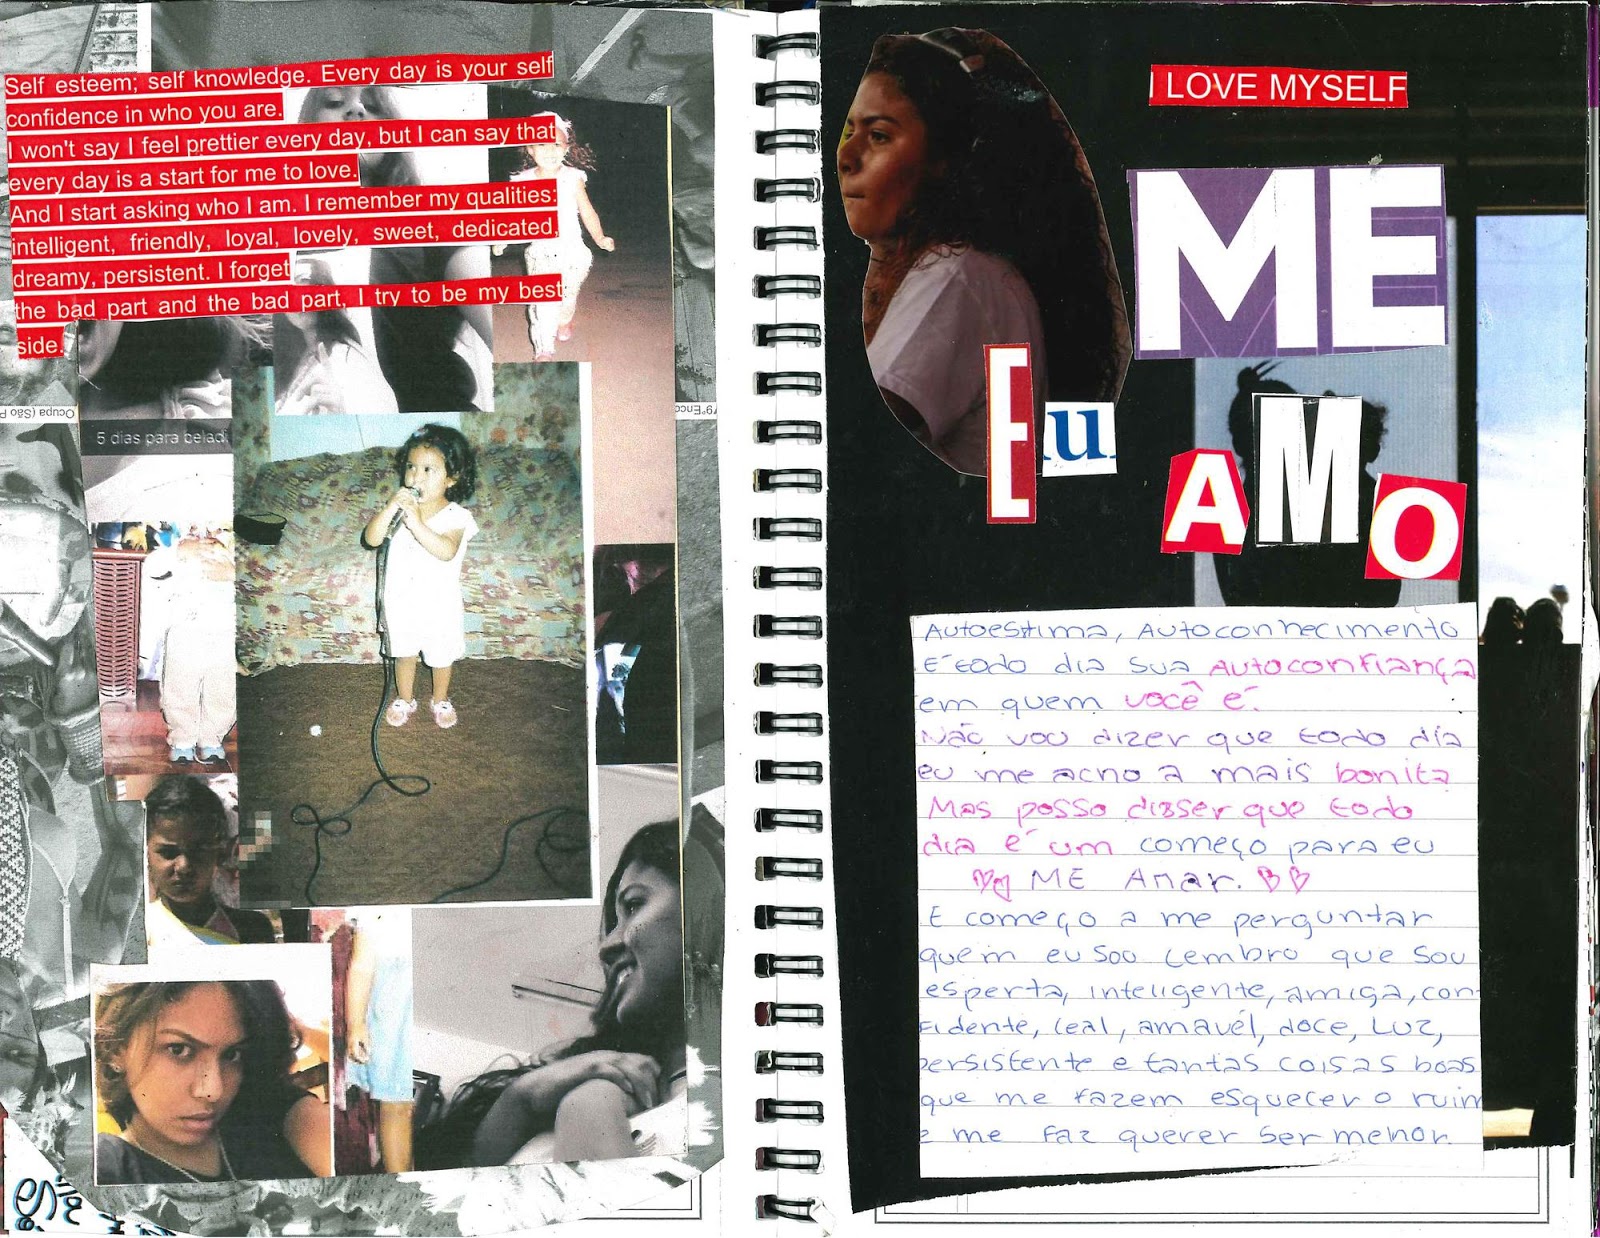 Self esteem; self knowledge. Every day is your self
confidence in who you are.
I won't say I feel prettier every day, but I can say that
every day is a start for me to love.
And I start asking who I am. I remember my qualities:
intelligent, friendly, loyal, lovely, sweet, dedicated,
dreamy, persistent. I forget
the bad part and the bad part, I try to be my best
side.
Ocupa (São P
79°Enco
5 dias para belad
I LOVE MYSELF
ME
Eu
AMO
Autoestima, Autoconhecimento
É todo dia sua Autoconfiança
em quem você é.
Não vou dizer que todo dia
eu me acho a mais bonita
Mas posso disser que todo
dia é um começo para eu
ME Amar.
E começo a me perguntar
quem eu sou Lembro que sou
esperta, inteligente, amiga, con
fidente, leal, amavél, doce, Luz,
persistente e tantas coisas boas
que me fazem esquecer o ruim
e me faz querer ser melhor.